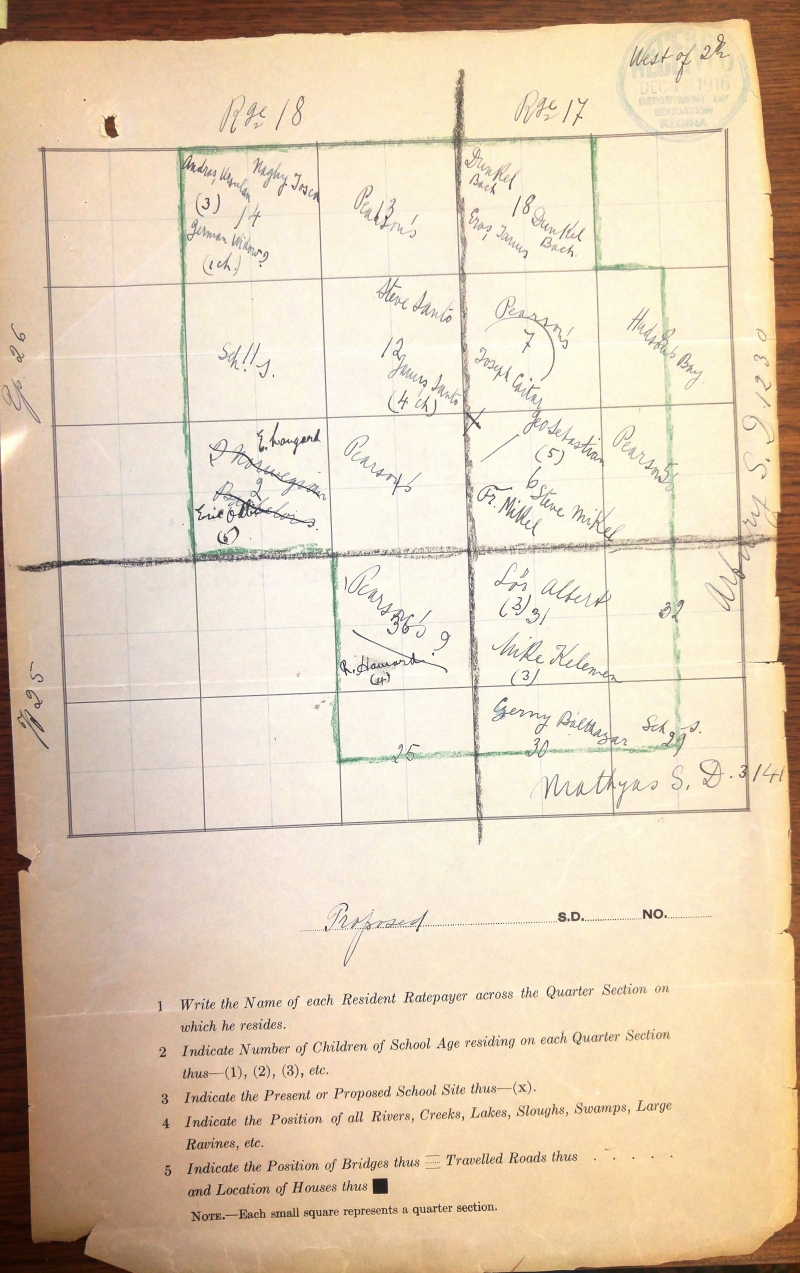 West of 2nd
DEC 1916
DEPARTMENT OF
EDUCATION
REGINA
Rge 18
Rge 17
Andras, Ursulan
Naghy Josca
(3)
14
German Widow?
(1 ch.)
13
Pearson's
Dunkel
Bach
18
Dunkel
Bach.
Eros, Janus
Tp. 26
Sch. 11 S.
Steve Santo
12
Janus Santo
(4 ch)
Pearson's
7
Joseph Csitar
Hudson's Bay.
E. Langard
2 Norwegian
2
Bachelors.
(6)
Pearson's
x
Geo Sebastian
(5)
6
Steve Mikel
Fr. Mikel
Pearson's
5
Arbury S. D. 1230
Tp 25
Pearson's
36
9
R. Hauward
(4)
Lőr Albert
(3)
31
Mike Kelemen
(3)
32
25
Czerny Balthazar
30
Sch. S.
29
Mathyas S. D. 3141
Proposed S.D. NO.
1 Write the Name of each Resident Ratepayer across the Quarter Section on
which he resides.
2 Indicate Number of Children of School Age residing on each Quarter Section
thus—(1), (2), (3), etc.
3 Indicate the Present or Proposed School Site thus—(x).
4 Indicate the Position of all Rivers, Creeks, Lakes, Sloughs, Swamps, Large
Ravines, etc.
5 Indicate the Position of Bridges thus Travelled Roads thus . . . . .
and Location of Houses thus ■
NOTE.—Each small square represents a quarter section.